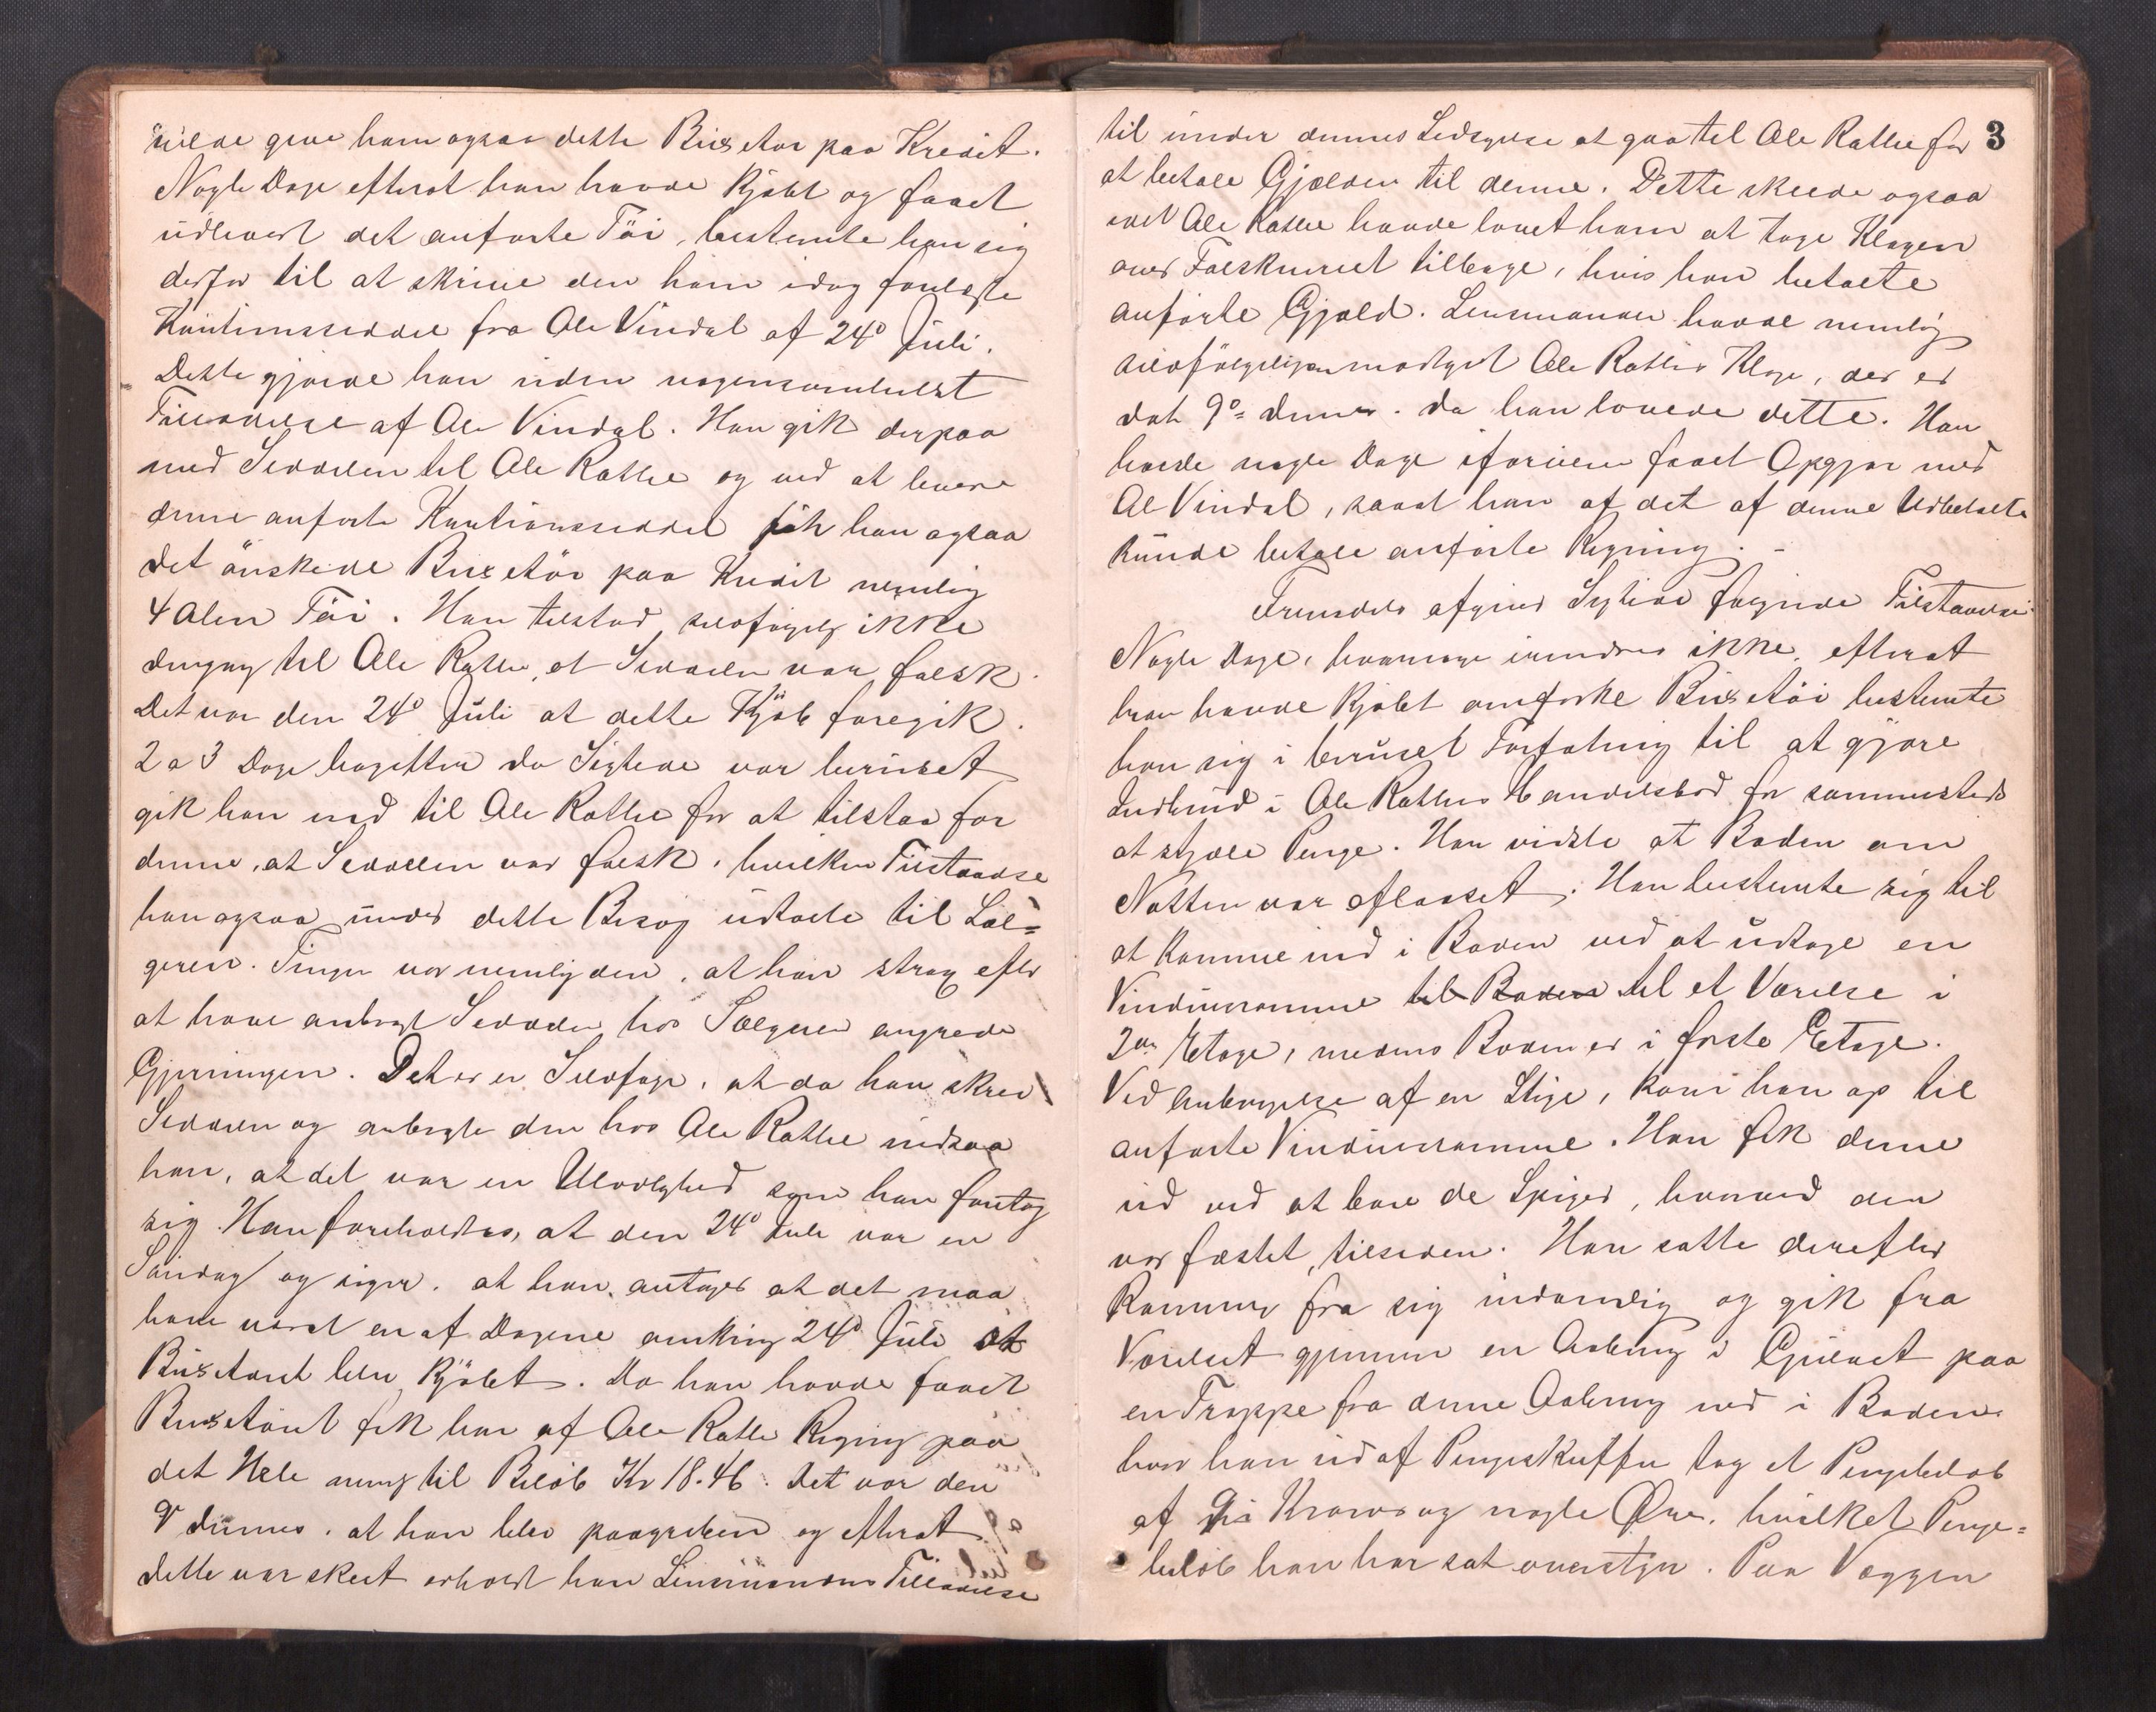 vilde give ham ogsaa dette Buxetøi paa Kredit.
Nogle Dage efterat han havde kjøbt og faaet
udleveret det anførte Töi, bestemte han sig
derfor til at skrive den ham idag forelagte
Kautionsseddel fra Ole Vindal af 24de Juli.
Dette gjorde han uden nogensomhelst
Tilladelse af Ole Vindal. Han gik derpaa
med Seddelen til Ole Rathe og ved at levere
denne anførte Kautionsseddel fik han ogsaa
det önskede Buxetöi paa Kredit nemlig
4 Alen Töi. Han tilstod selvfølgelig ikke
dengang til Ole Rathe, at Seddelen var falsk.
Det var den 24de Juli at dette Kjöb foregik.
2 a 3 Dage bagefter da Sigtede var beruset
gik han ned til Ole Rathe for at tilstaa for
denne, at Seddelen var falsk, hvilken Tilstaaelse
han ogsaa under dette Besøg udtalte til Sæl=
geren. Tingen var nemlig den, at han strax efter
at have anbragt Seddelen hos Sælgeren angrede
Gjerningen. Det er en Selvfølge, at da han skrev
Seddelen og anbragte den hos Ole Rathe indsaa
han, at det var en Ulovlighed som han foretog
sig. Han foreholdtes, at den 24de Juli var en
Söndag og siger, at han antager at det maa
have været en af Dagene omkring 24de Juli at
Buxetøiet blev kjöbt. Da han havde faaet
Buxetöiet fik han af Ole Rathe Regning paa
det Hele nemlig til Belöb Kr 18.46. Det var den
9de dennes, at han blev paagreben og efterat
dette var skeet erholdt han Lensmandens Tilladelse
3
til under dennes Ledsagelse at gaa til Ole Rathe for
at betale Gjælden til denne. Dette skede ogsaa
idet Ole Rathe havde lovet ham at tage Klagen
over Falskneriet tilbage, hvis han betalte
anførte Gjæld. Lensmanden havde nemlig
selvfölgeligen modtaget Ole Rathes Klage, der er
dat 9de dennes. da han lovede dette. Han
havde nogle Dage iforveien faaet Opgjør med
Ole Vindal, saaat han af det af denne Udbetalte
kunde betale anførte Regning. -
Fremdeles afgiver Sigtede følgende Tilstaaelse:
Nogle Dage, hvormange erindres ikke, efterat
han havde kjøbt anførte Buxetöi bestemte
han sig i beruset Forfatning til at gjøre
Indbrud i Ole Rathes Handelsbod for sammesteds
at stjæle Penge. Han vidste at Boden om
Natten var aflaaset. Han bestemte sig til
at komme ind i Boden ved at udtage en
Vinduesramme til Boden til et Værelse i
2den Etage, medens Boden er i første Etage.
Ved Anbringelse af en Stige, kom han op til
anførte Vinduesramme. Han fik denne
ud ved at böie de Spiger, hvormed den
var fæstet, tilside. Han satte derefter
Rammen fra sig indvendig og gik fra
Værelset gjennem en Aabning i Gulvet paa
en Trappe fra denne Aabning ned i Boden
hvor han ud af Pengeskuffen tog et Pengebeløb
af Kroner og nogle Øre, hvilket Penge=
beløb han har sat overstyr. Paa Væggen